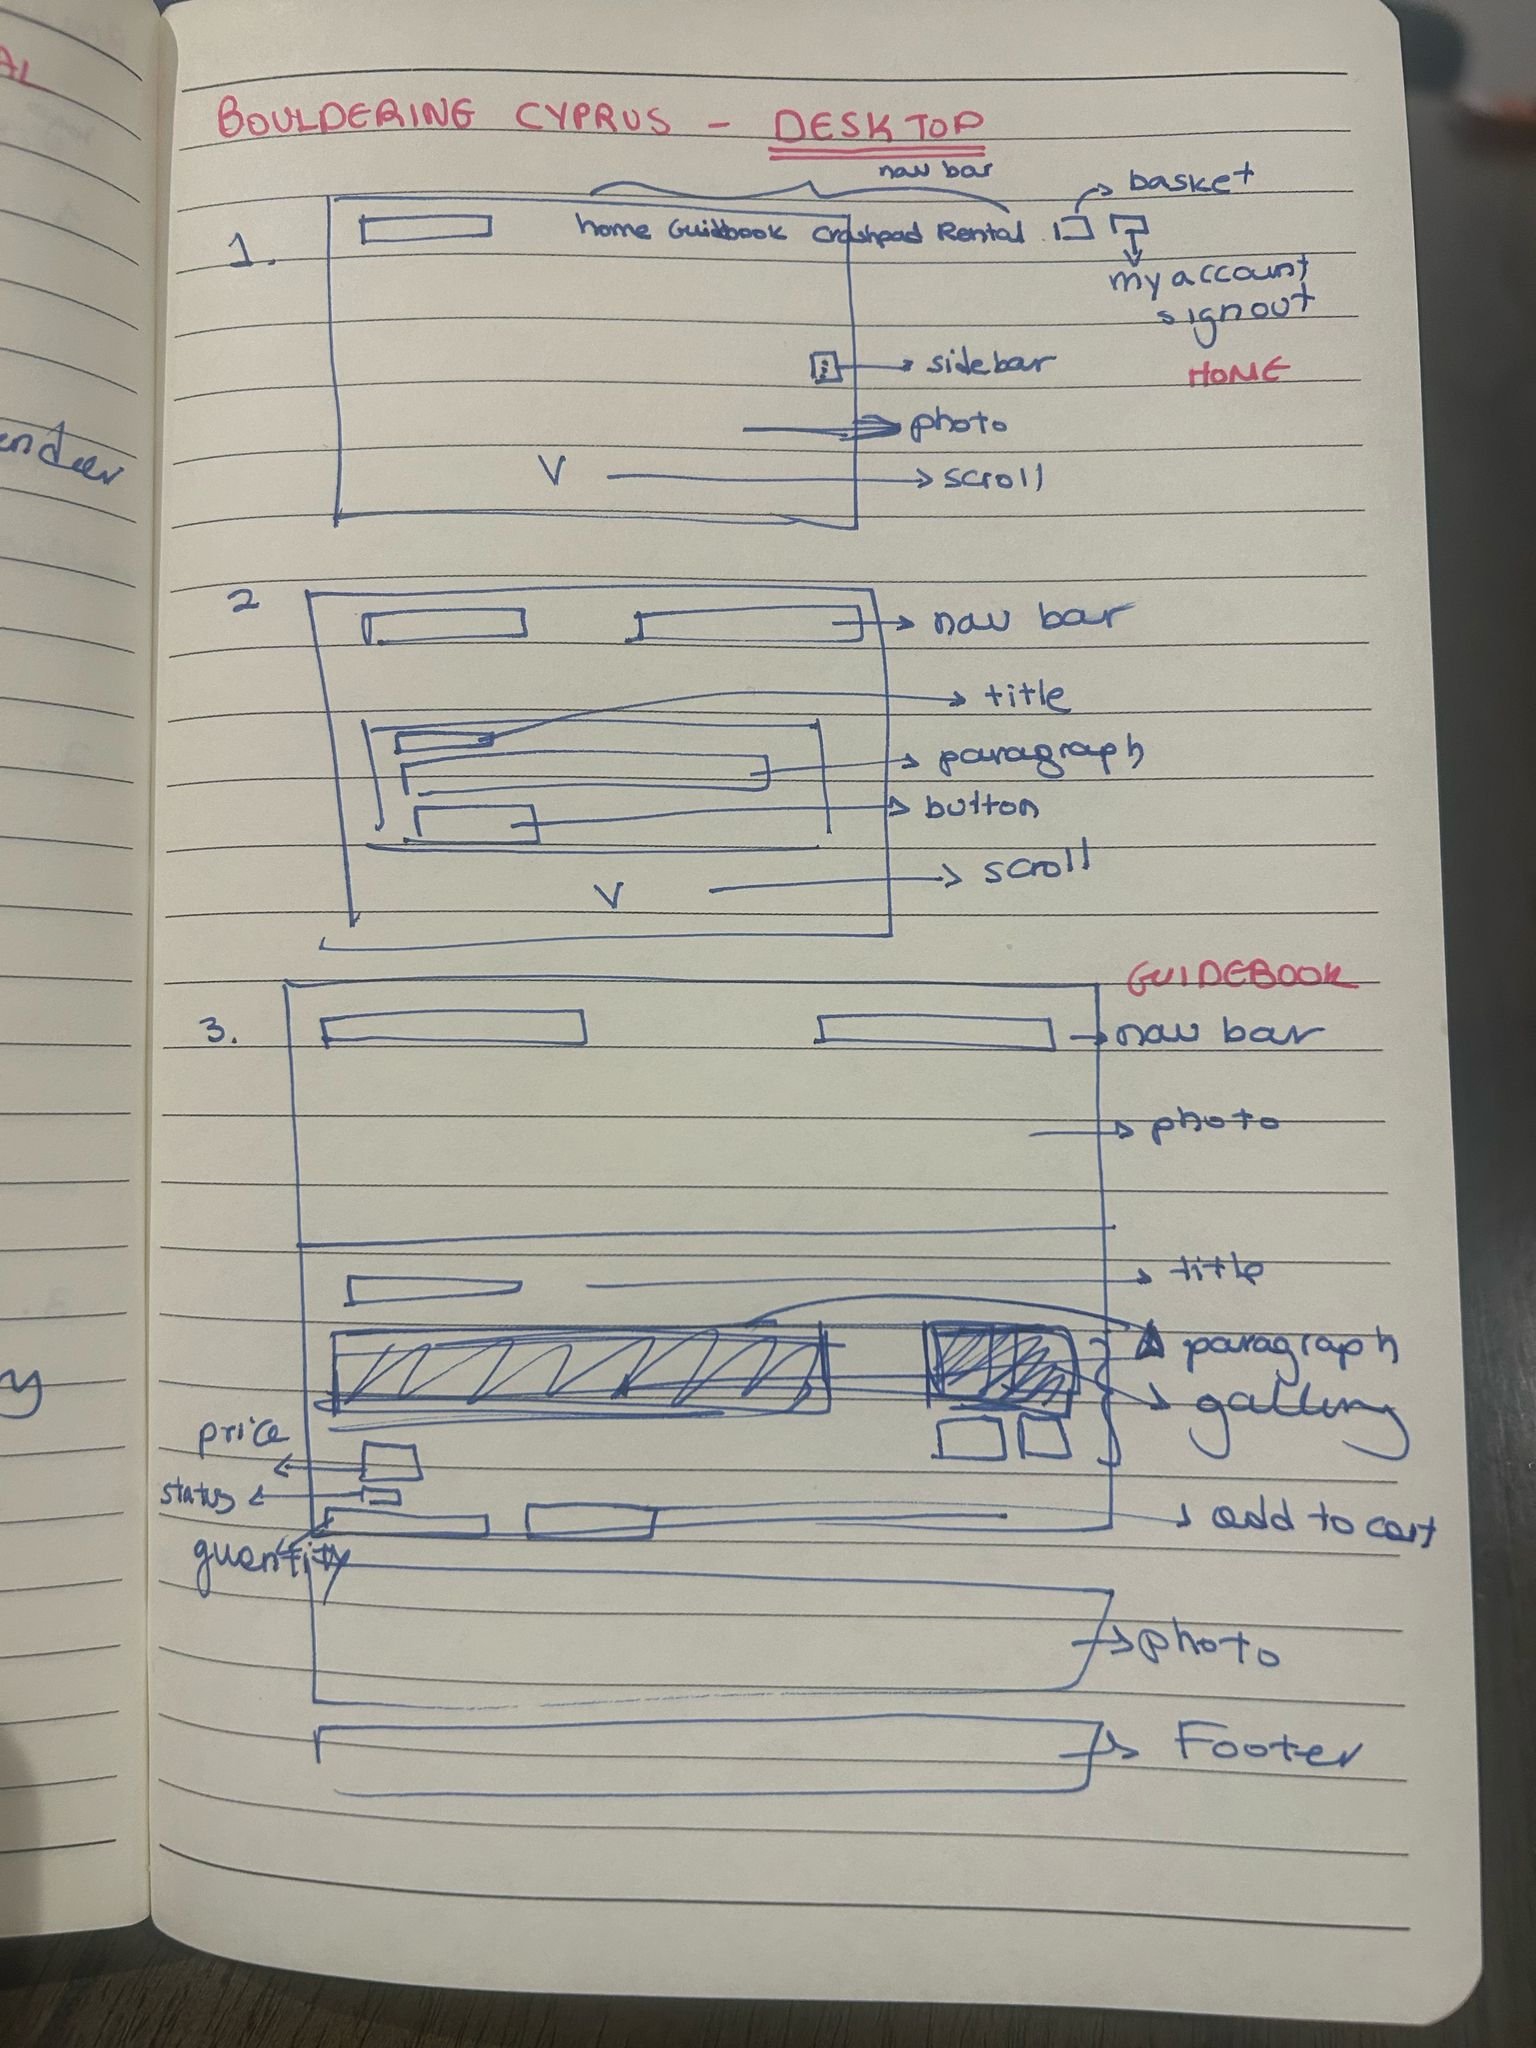 AL
BOULDERING CYPRUS - DESKTOP
nav bar
basket
1.
home Guidbook Crashpad Rental
my account
signout
i
sidebar
HOME
photo
V
scroll
2
nav bar
title
paragraph
button
V
scroll
GUIDEBOOK
3.
nav bar
photo
title
paragraph
gallery
price
status
add to cart
quantity
photo
Footer